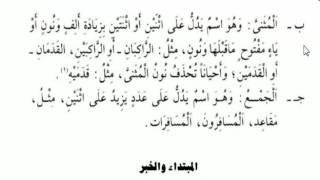 ب ـ اَلْمُثَنَّى : وَهُوَ اسْمٌ يَدُلُّ عَلَى اثْنَيْنِ أَوْ اثْنَتَيْنِ بِزِيَادَةِ أَلِفٍ وَنُونٍ أَوْ
يَاءٍ مَفْتُوحٍ مَاقَبْلَهَا وَنُونٍ، مِثْلُ : اَلرَّاكِبَانِ ـ أَوِ الرَّاكِبَيْنِ، اَلْقَدَمَانِ ـ
أَوِ الْقَدَمَيْنِ؛ وَأَحْيَاناً تُحْذَفُ نُونُ الْمُثَنَّى، مِثْلُ : قَدَمَيْهِ(١).
جـ ـ اَلْجَمْعُ : وَهُوَ اسْمٌ يَدُلُّ عَلَى عَدَدٍ يَزِيدُ عَلَى اثْنَيْنِ، مِثْلُ،
مَقَاعِد، اَلْمُسَافِرُونَ، اَلْمُسَافِرَات.
المبتداء والخبر